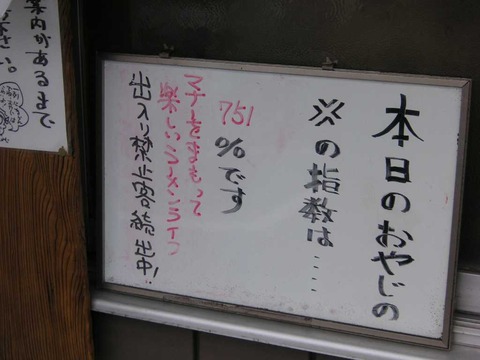 本日のおやじの
※の指数は……
751%です
マナーをまもって
楽しいラーメンライフ
出入り禁止客続出中!
案内があるまで
さい。